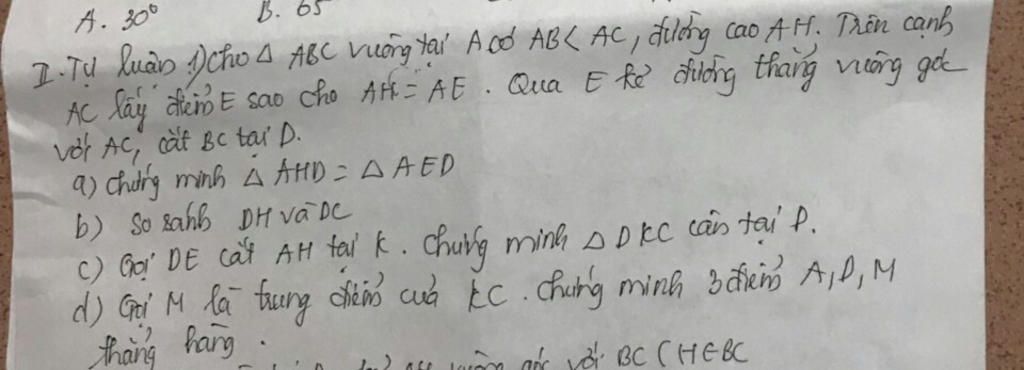 A. 30° B. 65
II. Tự luận 1) Cho Δ ABC vuông tại A có AB < AC, đường cao AH. Trên cạnh
AC lấy điểm E sao cho AH = AE. Qua E kẻ đường thẳng vuông góc
với AC, cắt BC tại D.
a) Chứng minh Δ AHD = Δ AED
b) So sánh DH và DC
c) Gọi DE cắt AH tại K. Chứng minh Δ DKC cân tại D.
d) Gọi M là trung điểm của KC. Chứng minh 3 điểm A, D, M
thẳng hàng.
góc với BC (H∈BC